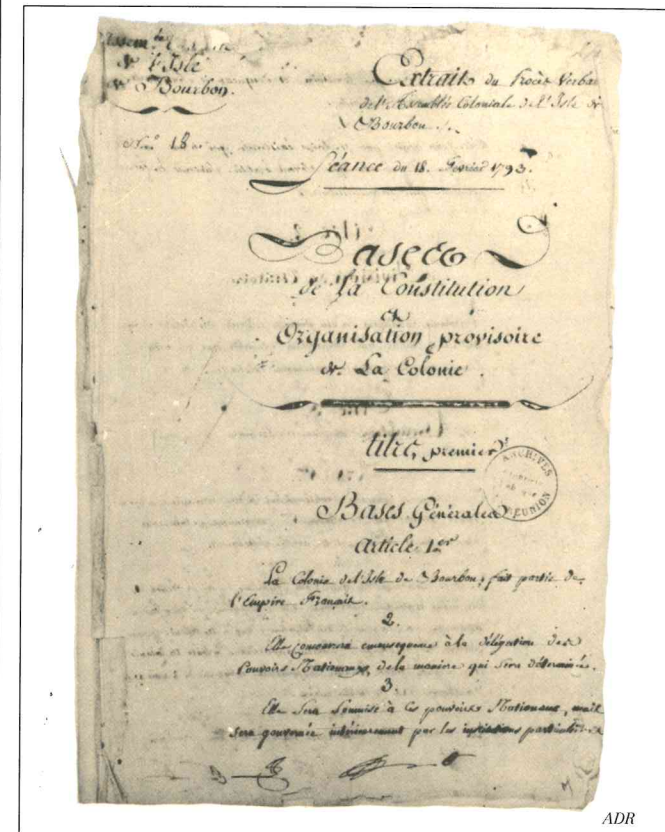 de l'Isle
de Bourbon.
N.º 18
Extrait du Procès Verbal
de l'Assemblée Coloniale de l'Isle de
Bourbon.
Séance du 18. Fevrier 1793.
Bases
de la Constitution
et
Organisation provisoire
de La Colonie.
titre premier
ARCHIVES
REUNION
Bases Générales
Article 1er
La Colonie de l'Isle de Bourbon, fait partie de
l'Empire Français.
2.
Elle concourra à la délégation des
Pouvoirs Nationaux, de la maniere qui sera déterminée.
3.
Elle sera soumise à ces pouvoirs Nationaux, mais
sera gouvernée intérieurement par les institutions particulières
ADR